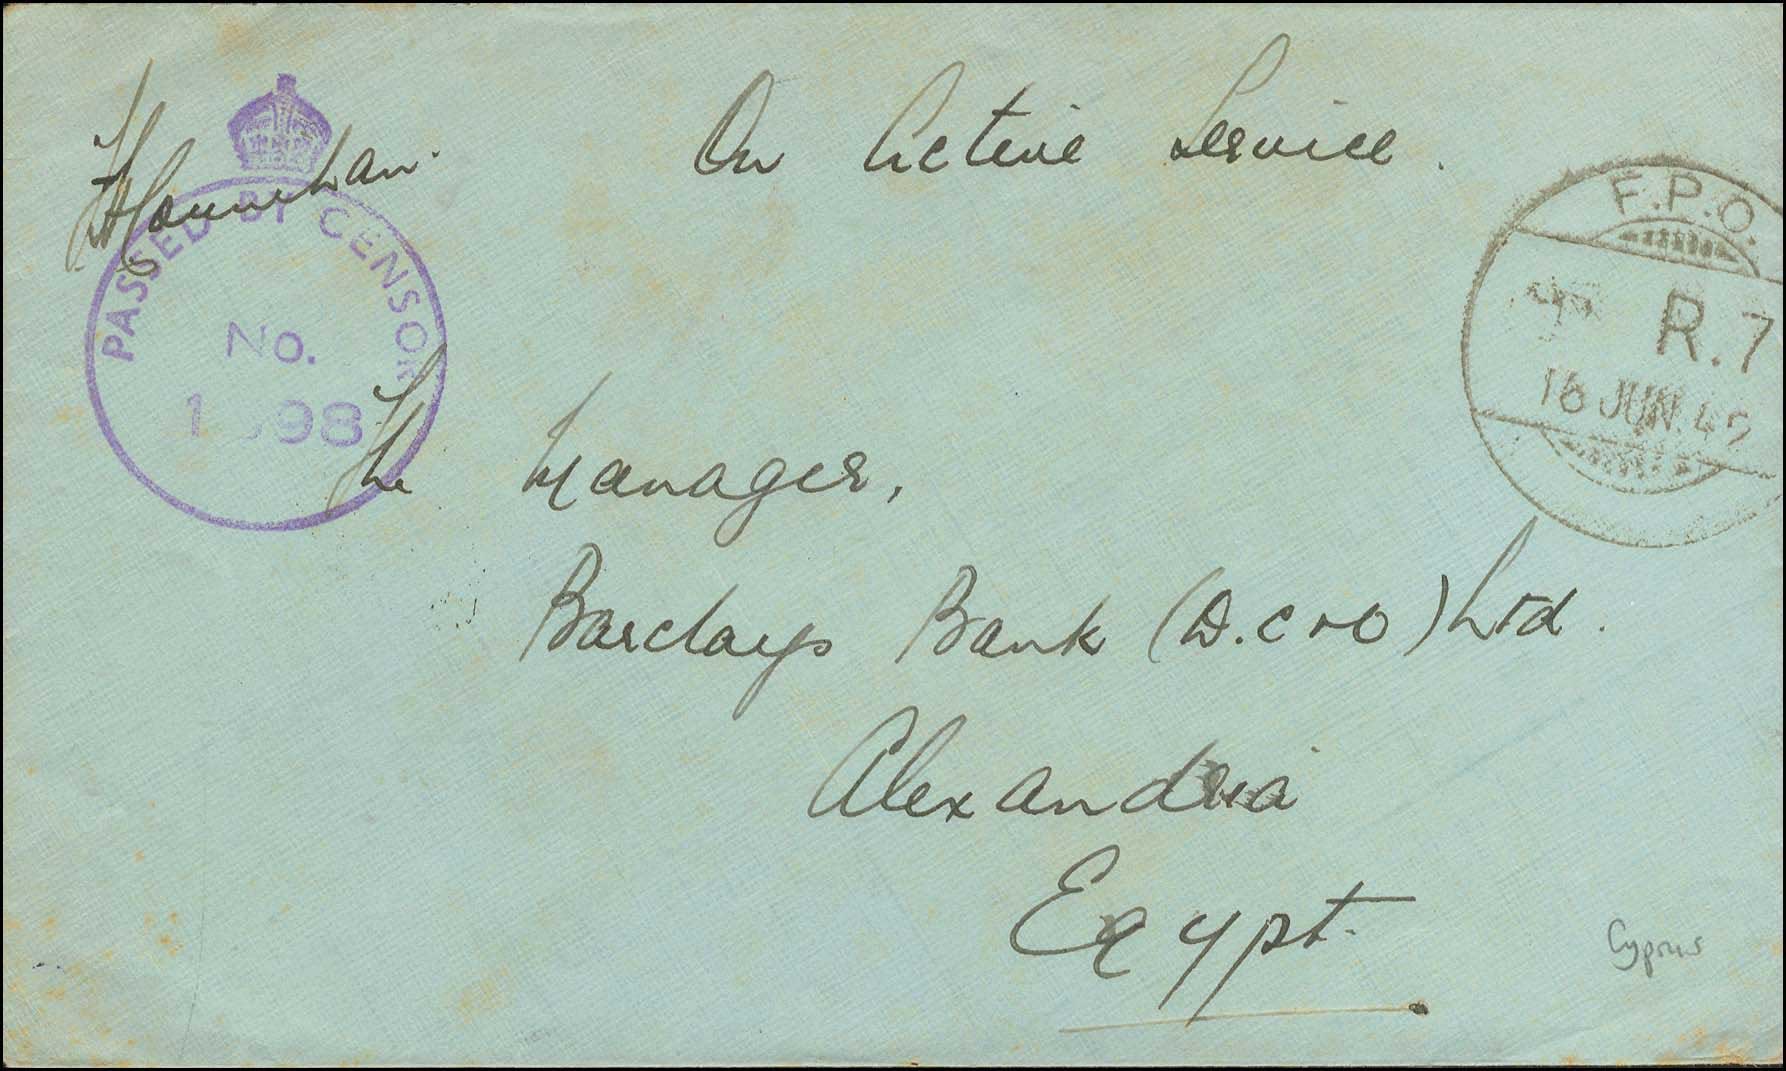 On Active Service.
PASSED BY CENSOR
No.
F.P.O.
R.7
16 JUN.42
The Manager,
Barclays Bank (D.C & O) Ltd.
Alexandria
Egypt.
Cyprus